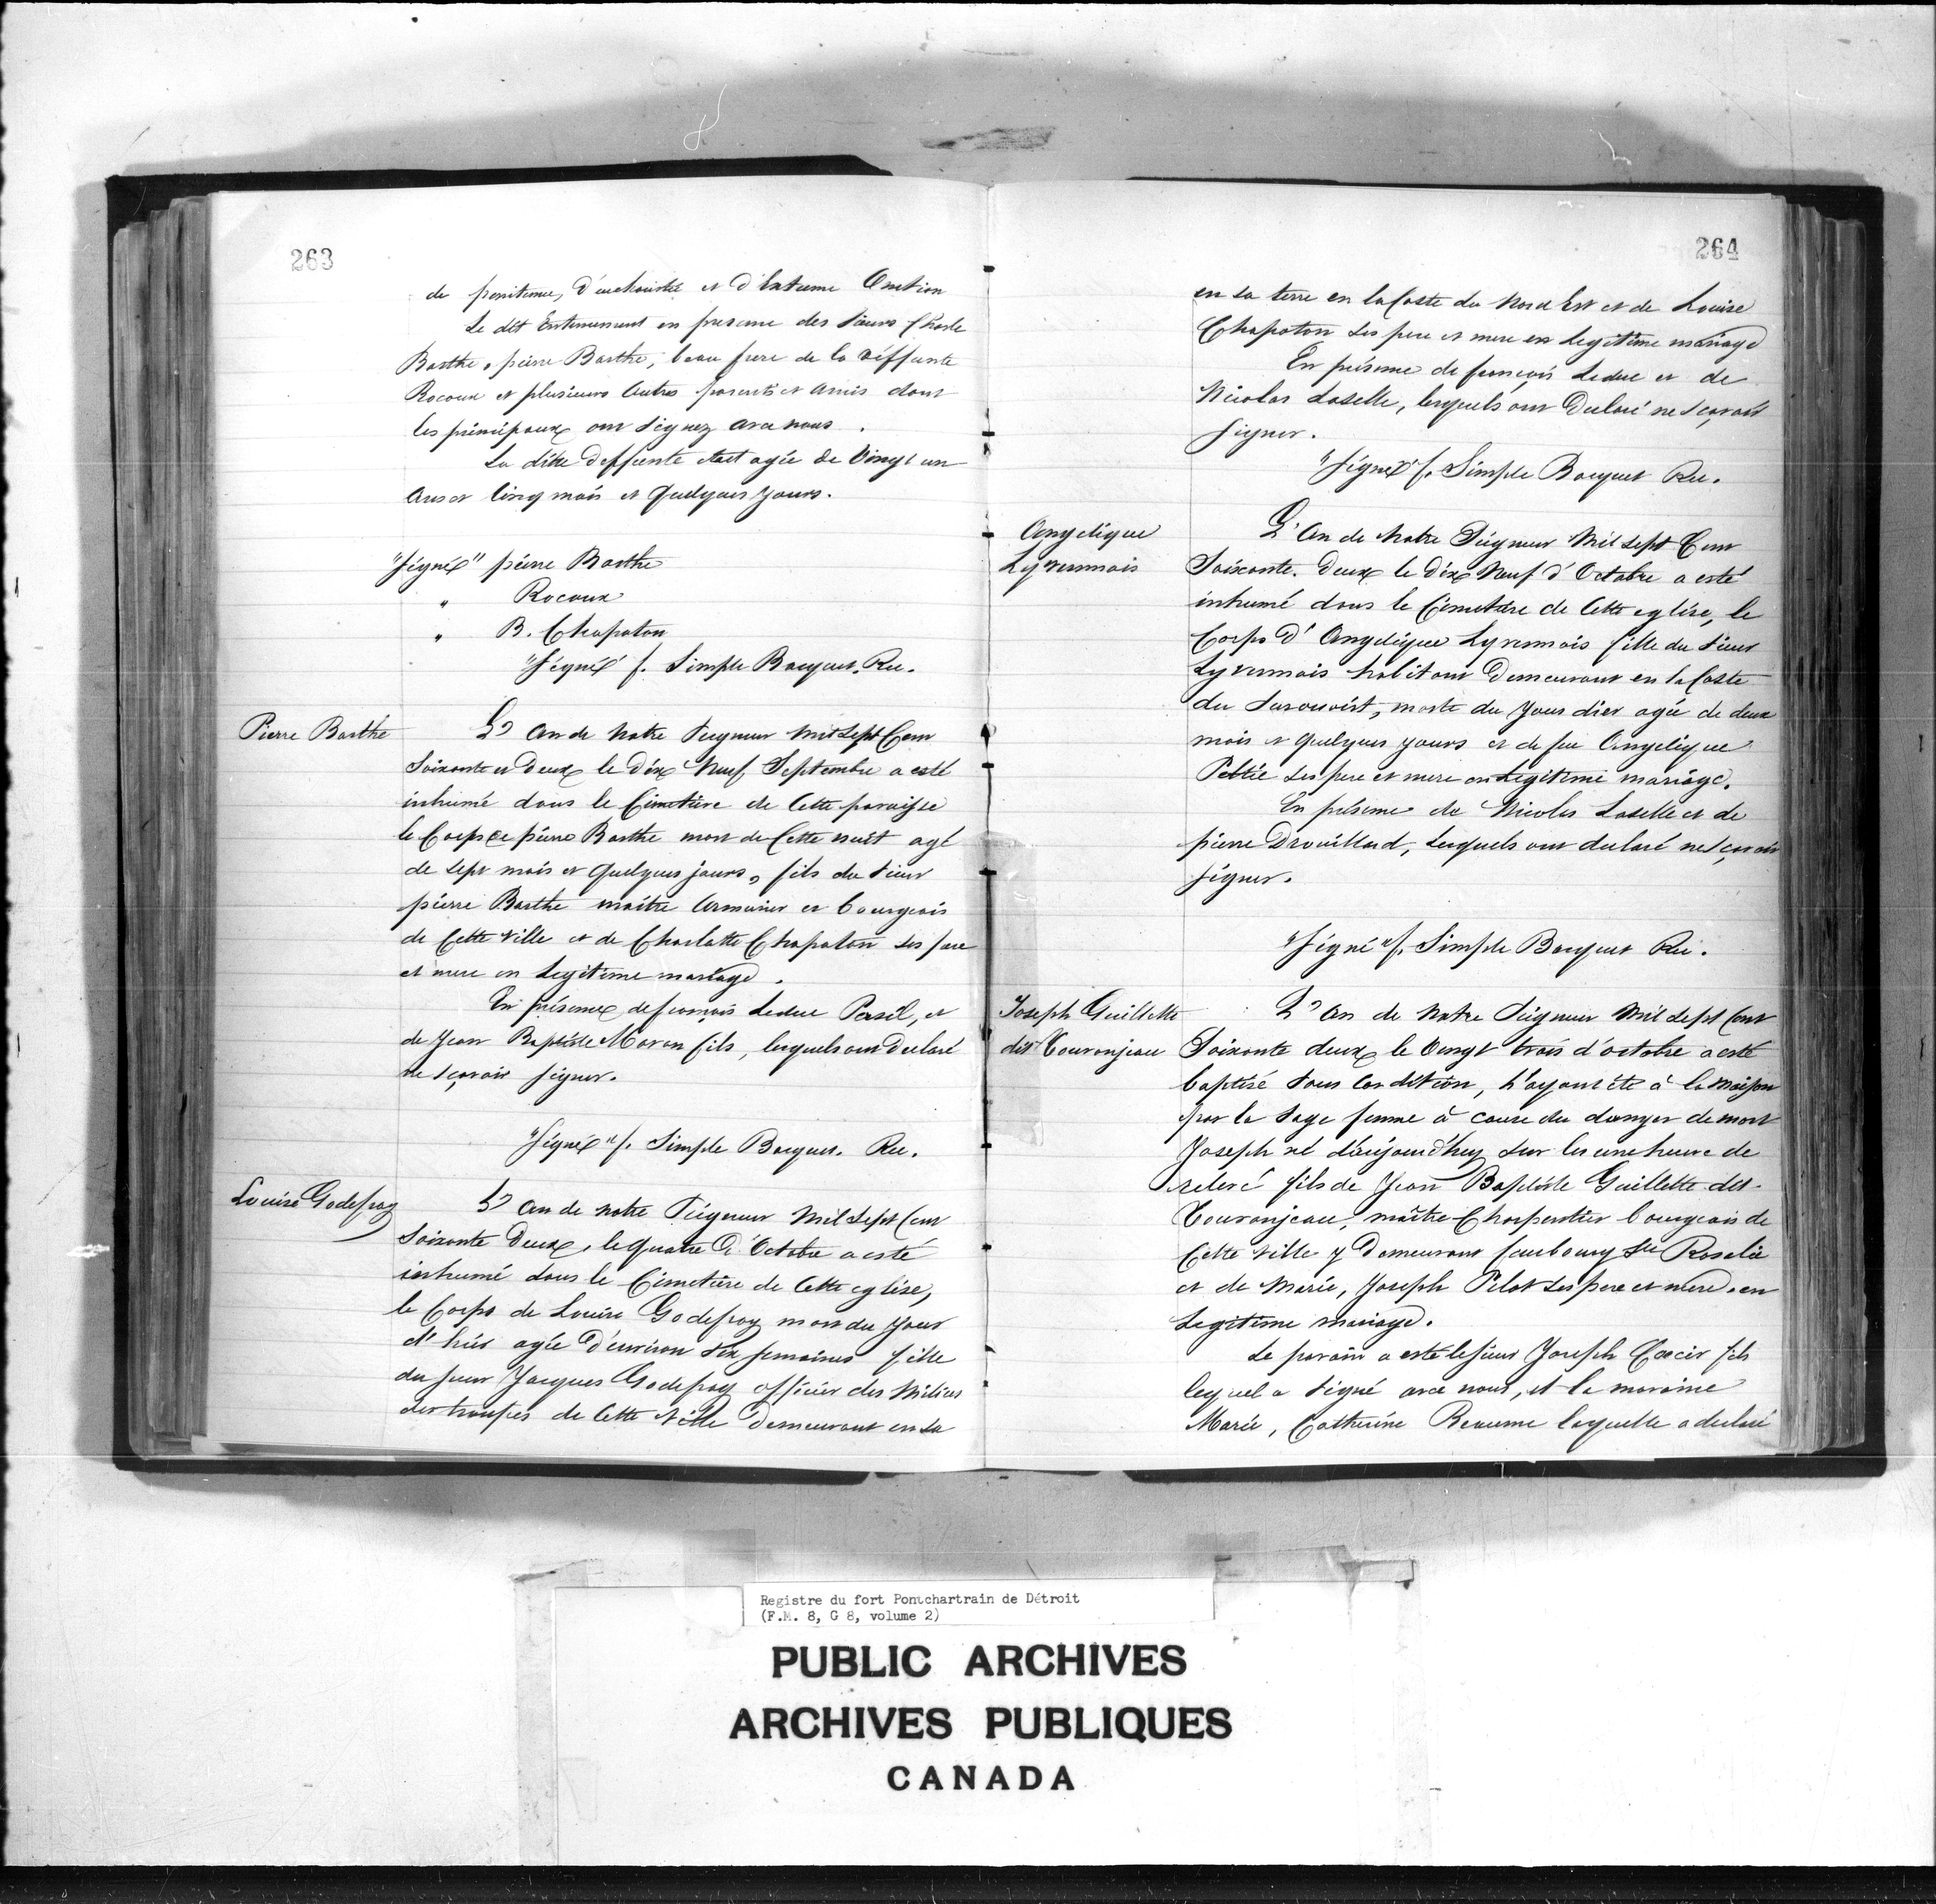 263
de penitence, d'euchariste et d'Extreme Onction
Le dit Enterrement en presence des Sieurs Charle
Barthe, pierre Barthe, beau frere de la déffunte
Rocoux et plusieurs Autres parents et Amis dont
les principaux ont signez avec nous.
La ditte deffunte était agée de Vingt un
Ans et Cinq mois et Quelques Jours.
"Signé" pierre Barthe
" Rocoux
" B. Chapoton
"Signé" f. Simple Bocquet. Rec.
Pierre Barthe
L'an de Notre Seigneur mil Sept Cent
Soixante et Deux le Dix Neuf Septembre a esté
inhumé dans le Cimetière de Cette paroisse
le Corps de pierre Barthe mort de Cette nuit agé
de Sept mois et Quelques jours, fils du Sieur
pierre Barthe maitre Armurier et bourgeois
de Cette Ville et de Charlotte Chapoton ses pere
et mere en Legitime mariage.
En présence de françois Leduc Persil, et
de Jean Baptiste Moran fils, lesquels ont Declaré
ne Sçavoir signer.
"Signé" f. Simple Bocquet. Rec.
Louise Godefroy
L'an de notre Seigneur mil Sept Cent
Soixante Deux, le Quatre d'Octobre a esté
inhumé dans le Cimetière de Cette eglise,
le Corps de Louise Godefroy mort du jour
d'hier agée d'environ six semaines fille
du sieur Jacques Godefroy officier des Milices
des troupes de Cette Ville Demeurant en Sa
264
en Sa terre en la Coste du Nord Est et de Louise
Chapoton ses pere et mere en Legitime mariage
En présence de françois Leduc et de
Nicolas Laselle, lesquels ont Declaré ne Sçavoir
signer.
"Signé" f. Simple Bocquet Rec.
Angelique
Lyvernnois
L'An de Notre Seigneur Mil Sept Cent
Soixante. Deux le Dix Neuf d'Octobre a esté
inhumé dans le Cimetière de Cette eglise, le
Corps d'Angelique Lyvernnois fille du Sieur
Lyvernnois habitant Demeurant en la Coste
du Surouoist, morte du Jour d'ier agée de deux
mois et Quelques jours et de feu Angelique
Peltié ses pere et mere en Legitime mariage.
En présence de Nicolas Laselle et de
pierre Drouillard, Lesquels ont declaré ne Sçavoir
signer.
"Signé" f. Simple Bocquet Rec.
Joseph Guillette
dit Touranjeau
L'An de Notre Seigneur Mil Sept Cent
Soixante deux le Vingt trois d'octobre a esté
baptisé sous Condition, L'ayant été à la maison
par la Sage femme à cause du danger de mort
Joseph né d'aujourd'huy sur les une heure de
relevé fils de Jean Baptiste Guillette dit.
Touranjeau, maître Charpentier bourgeois de
Cette Ville y Demeurant faubourg Ste Rosalie
et de Marie, Joseph Pilot ses pere et mere en
Legitime mariage.
Le parain a esté le sieur Joseph fils
lequel a signé avec nous, et la maraine
Marie, Catherine Reaume laquelle a declaré
Registre du fort Pontchartrain de Détroit
(F.M. 8, G 8, volume 2)
PUBLIC ARCHIVES
ARCHIVES PUBLIQUES
CANADA